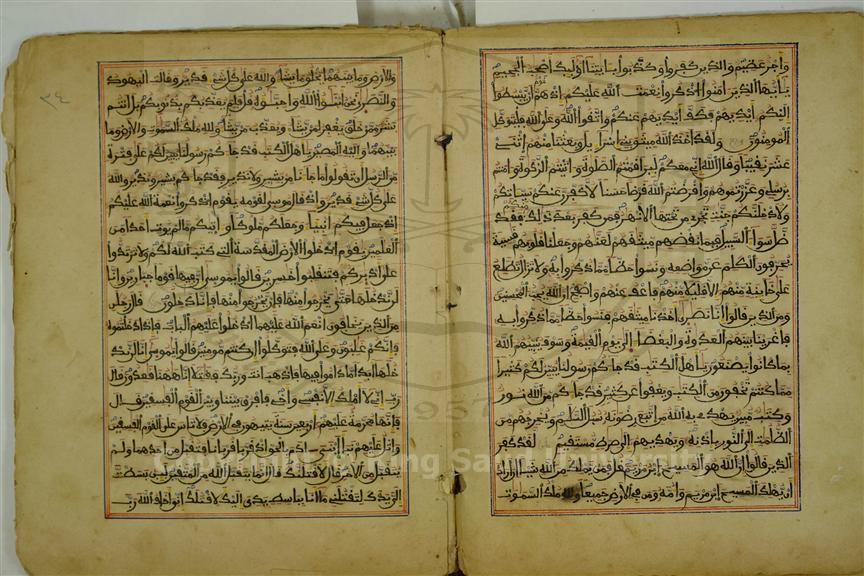 واجر عظيم والذين كفروا وكذبوا بايتنا اوليك اصحب الجحيم
يايها الذين امنوا اذكروا نعمت الله عليكم اذ هم قوم ان يبسطوا
اليكم ايديهم فكف ايديهم عنكم واتقوا الله وعلى الله فليتوكل
المومنون ولقد اخذ الله ميثق بني اسرايل وبعثنا منهم اثني
عشر نقيبا وقال الله اني معكم لين اقمتم الصلوة واتيتم الزكوة وامنتم
برسلي وعزرتموهم واقرضتم الله قرضا حسنا لاكفرن عنكم سياتكم
ولادخلنكم جنت تجري من تحتها الانهر فمن كفر بعد ذلك منكم فقد
ضل سوا السبيل فبما نقضهم ميثقهم لعنهم وجعلنا قلوبهم قسية
يحرفون الكلم عن مواضعه ونسوا حظا مما ذكروا به ولا تزال تطلع
على خاينة منهم الا قليلا منهم فاعف عنهم واصفح ان الله يحب المحسنين
ومن الذين قالوا انا نصرى اخذنا ميثقهم فنسوا حظا مما ذكروا به
فاغرينا بينهم العداوة والبغضا الى يوم القيمة وسوف ينبيهم الله
بما كانوا يصنعون ياهل الكتب قد جاكم رسولنا يبين لكم كثيرا
مما كنتم تخفون من الكتب ويعفوا عن كثير قد جاكم من الله نور
وكتب مبين يهدي به الله من اتبع رضونه سبل السلم ويخرجهم من
الظلمت الى النور باذنه ويهديهم الى صرط مستقيم لقد كفر
الذين قالوا ان الله هو المسيح ابن مريم قل فمن يملك من الله شيا ان اراد
ان يهلك المسيح ابن مريم وامه ومن في الارض جميعا ولله ملك السموت
٣٤
والارض وما بينهما يخلق ما يشا والله على كل شي قدير وقالت اليهود
والنصرى نحن ابنوا الله واحبوه قل فلم يعذبكم بذنوبكم بل انتم
بشر ممن خلق يغفر لمن يشا ويعذب من يشا ولله ملك السموت والارض وما
بينهما واليه المصير ياهل الكتب قد جاكم رسولنا يبين لكم على فترة
من الرسل ان تقولوا ما جانا من بشير ولا نذير فقد جاكم بشير ونذير والله
على كل شي قدير واذ قال موسى لقومه يقوم اذكروا نعمة الله عليكم
اذ جعل فيكم انبيا وجعلكم ملوكا واتيكم ما لم يوت احدا من
العلمين يقوم ادخلوا الارض المقدسة التي كتب الله لكم ولا ترتدوا
على ادبركم فتنقلبوا خسرين قالوا يموسى ان فيها قوما جبارين وانا
لن ندخلها حتى يخرجوا منها فان يخرجوا منها فانا دخلون قال رجلن
من الذين يخافون انعم الله عليهما ادخلوا عليهم الباب فاذا دخلتموه
فانكم غلبون وعلى الله فتوكلوا ان كنتم مومنين قالوا يموسى انا لن ند
خلها ابدا ما داموا فيها فاذهب انت وربك فقتلا انا ههنا قعدون قال
رب اني لا املك الا نفسي واخي فافرق بيننا وبين القوم الفسقين قال
فانها محرمة عليهم اربعين سنة يتيهون في الارض فلا تاس على القوم الفسقين
واتل عليهم نبا ابني ادم بالحق اذ قربا قربانا فتقبل من احدهما ولم
يتقبل من الاخر قال لاقتلنك قال انما يتقبل الله من المتقين لين بسطت
الي يدك لتقتلني ما انا بباسط يدي اليك لاقتلك اني اخاف الله رب
1957
King Saud University